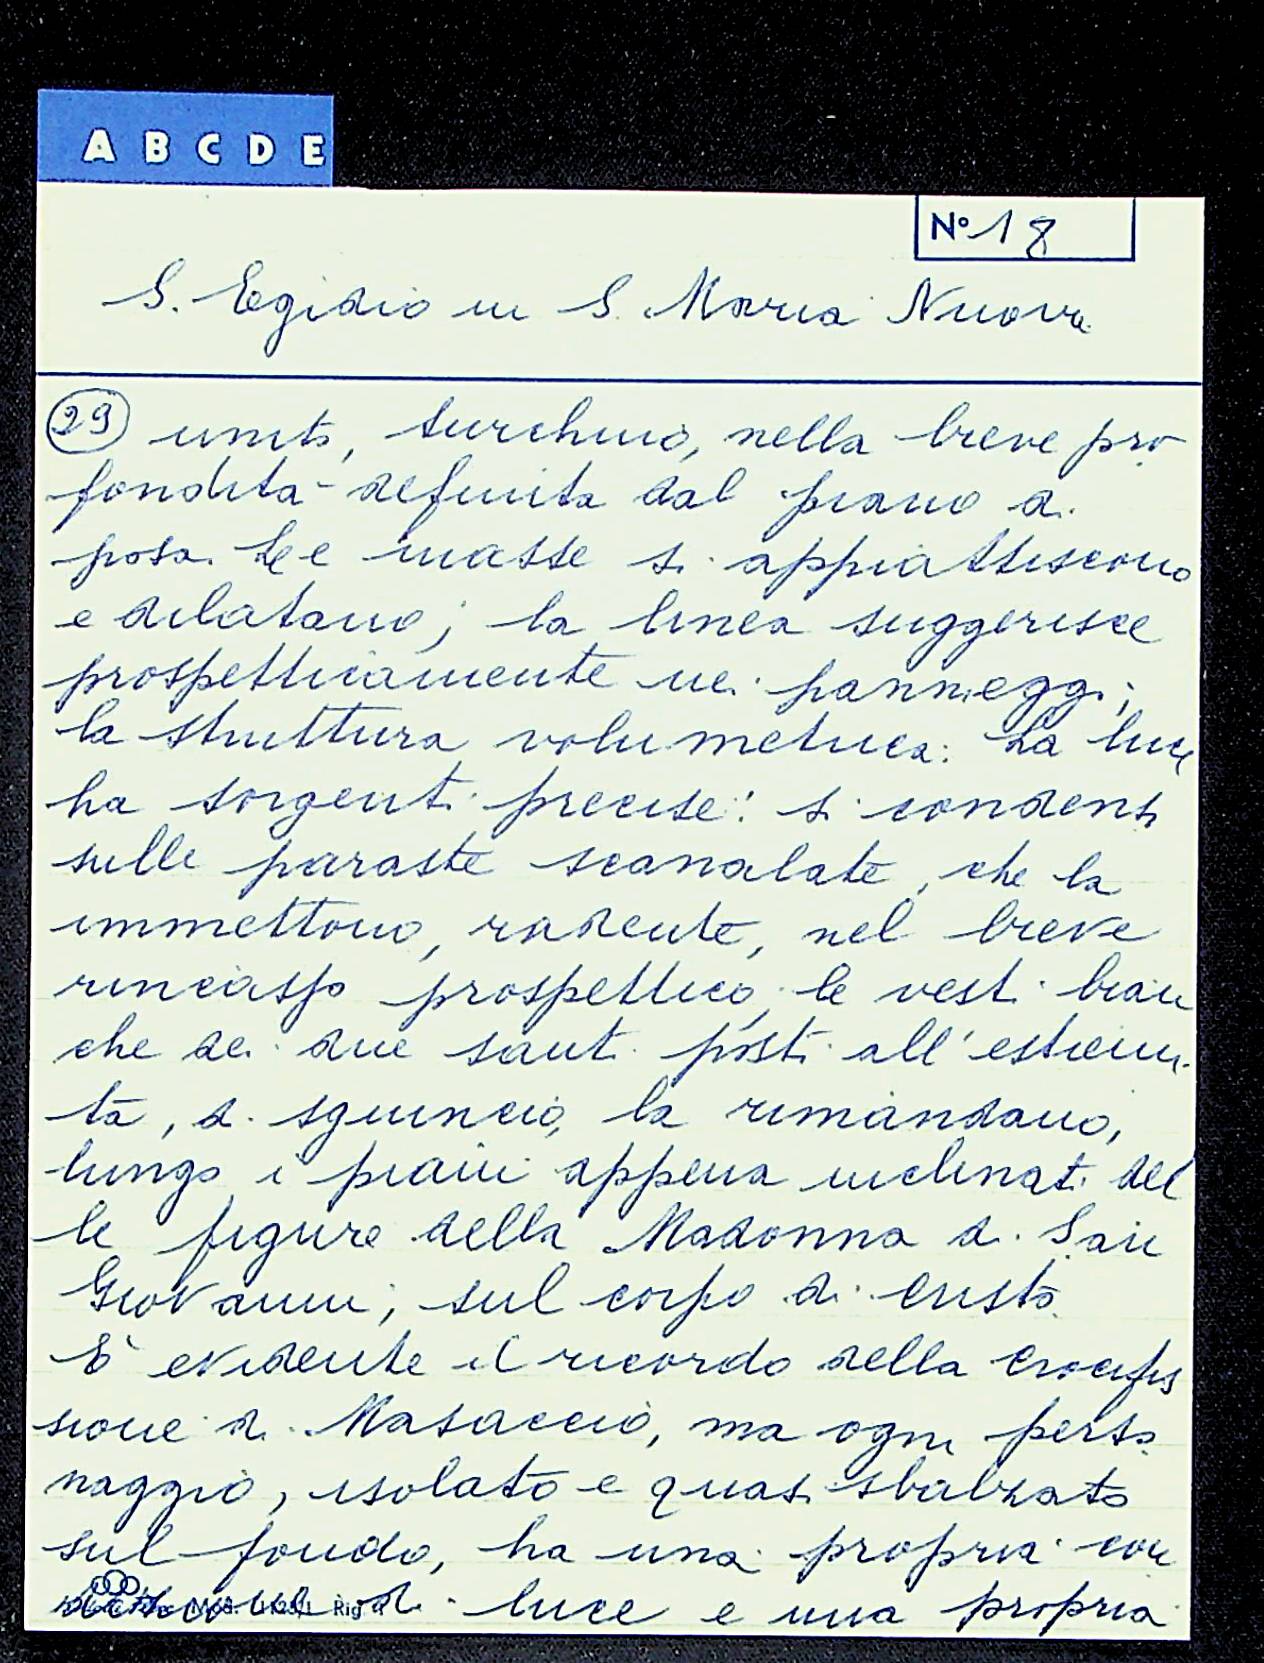 A B C D E
N° 18
S. Egidio in S. Maria Nuova
29 unito, turchino, nella breve pro
fondità definita dal piano di
posa. Le masse si appiattiscono
e dilatano; la linea suggerisce
prospetticamente nei panneggi,
la struttura volumetrica. La luce
ha sorgenti precise: si condensa
sulle paraste scanalate, che la
immettono, radente, nel breve
rincasso prospettico, le vesti bian
che dei due santi posti all'estremi
tà, di sguincio, la rimandano,
lungo i piani appena inclinati del
le figure della Madonna di San
Giovanni, sul corpo di Cristo.
È evidente il ricordo della Crocifis
sione di Masaccio, ma ogni perso
naggio, isolato e quasi sbalzato
sul fondo, ha una propria con
di luce e una propria
Mod. Rig